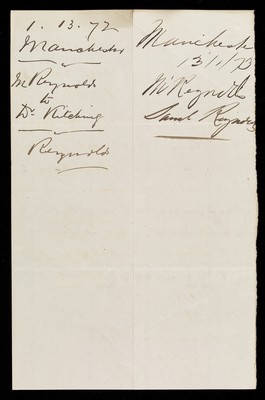 1. 13. 72
Manchester
Mr Reynolds
to
Dr Kitching
Reynolds
Manchester
13/1/73
Mr Reynolds
Saml Reynolds